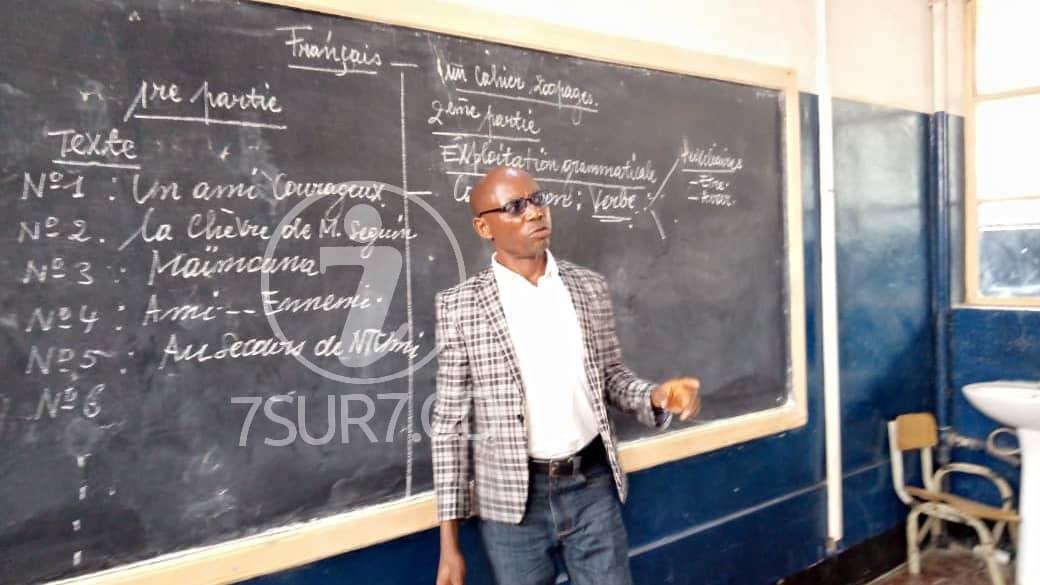 Français
1re partie
Texte
Nº1 : Un ami Courageux
Nº 2. La Chèvre de M. Seguin
Nº 3 : Maïmouna
Nº 4 : Ami -- Ennemi.
Nº 5 : Au Secours de
Nº 6
Un Cahier 200pages.
2ème partie
Exploitation grammaticale
Verbe
Auxiliaires
- Être.
- Avoir.
7SUR7.CD